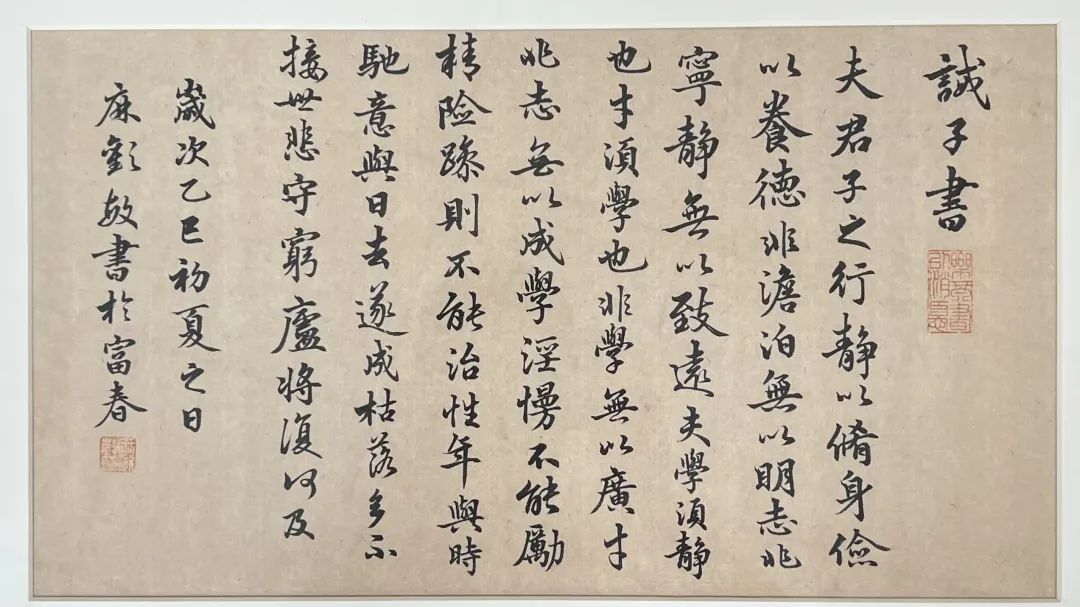 誡子書
樂琴書
以消憂
夫君子之行静以脩身儉
以養德非澹泊無以明志非
寧静無以致遠夫學須静
也才須學也非學無以廣才
非志無以成學淫慢不能勵
精險躁則不能治性年與時
馳意與日去遂成枯落多不
接世悲守窮廬將復何及
歲次乙巳初夏之日
麻敏書於富春